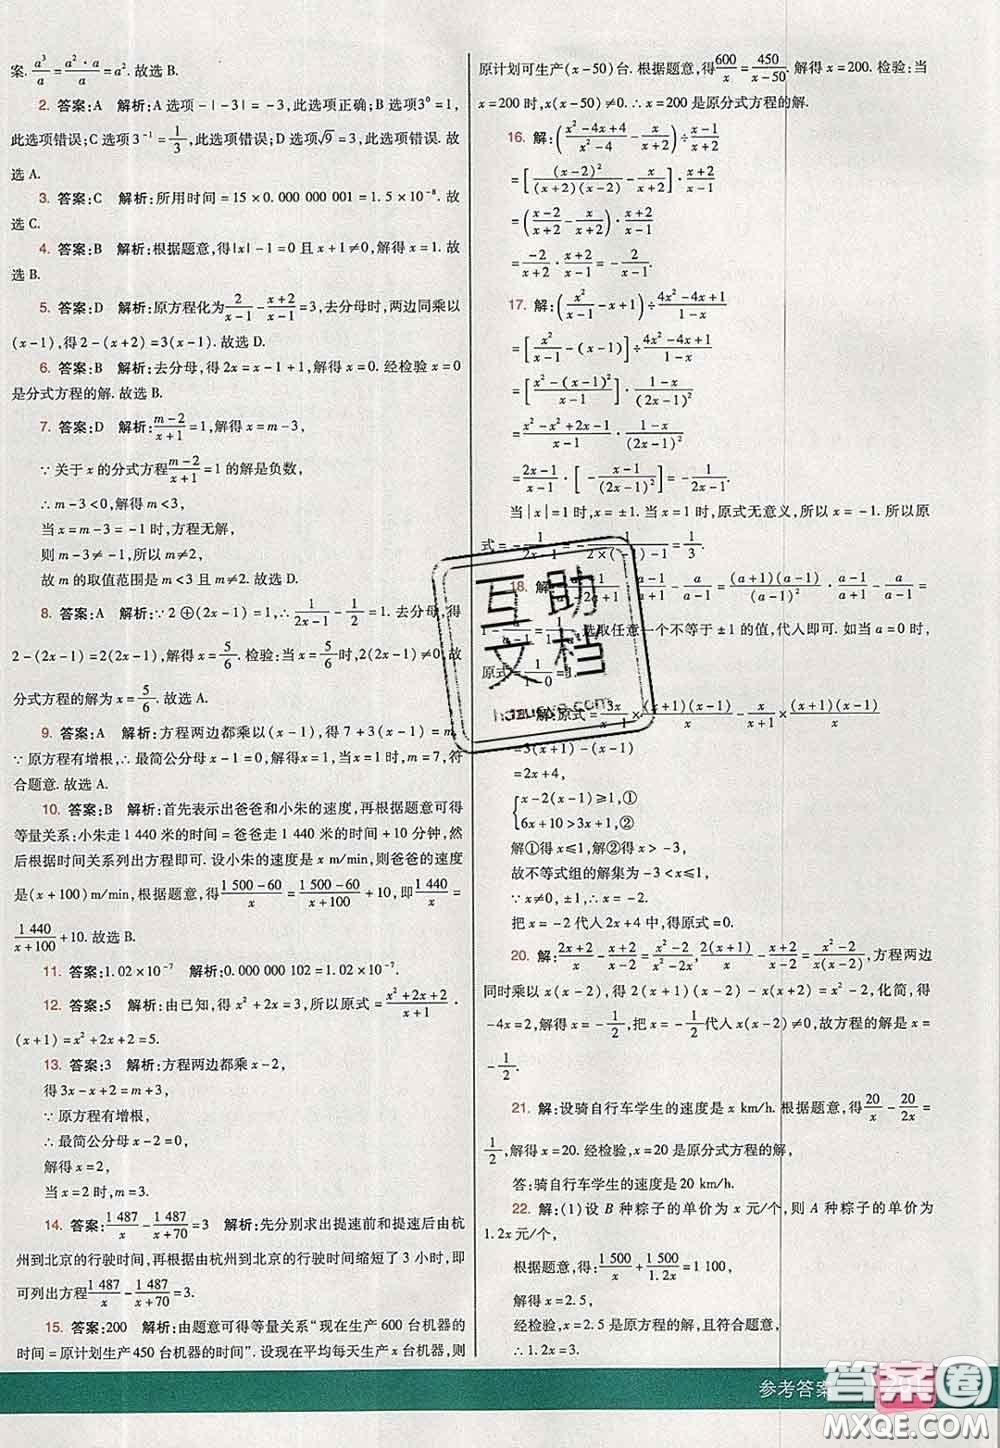 案. a³/a = a²·a/a = a². 故选 B.
2. 答案:A 解析:A 选项 -|-3| = -3, 此选项正确; B 选项 3⁰ = 1,
此选项错误; C 选项 3⁻¹ = 1/3, 此选项错误; D 选项 √9 = 3, 此选项错误. 故
选 A.
3. 答案:C 解析:所用时间 = 15 × 0.000 000 001 = 1.5 × 10⁻⁸. 故
选 C.
4. 答案:B 解析:根据题意, 得|x| - 1 = 0 且 x + 1 ≠ 0, 解得 x = 1. 故
选 B.
5. 答案:D 解析:原方程化为 2/(x-1) - (x+2)/(x-1) = 3, 去分母时, 两边同乘以
(x-1), 得 2 - (x+2) = 3(x-1). 故选 D.
6. 答案:B 解析:去分母, 得 2x = x - 1 + 1, 解得 x = 0. 经检验 x = 0
是分式方程的解. 故选 B.
7. 答案:D 解析:(m-2)/(x+1) = 1, 解得 x = m - 3,
∵ 关于 x 的分式方程 (m-2)/(x+1) = 1 的解是负数,
∴ m - 3 < 0, 解得 m < 3,
当 x = m - 3 = -1 时, 方程无解,
则 m - 3 ≠ -1, 所以 m ≠ 2,
故 m 的取值范围是 m < 3 且 m ≠ 2. 故选 D.
8. 答案:A 解析:∵ 2⊕(2x-1) = 1, ∴ 1/(2x-1) - 1/2 = 1. 去分母, 得
2 - (2x-1) = 2(2x-1), 解得 x = 5/6. 检验:当 x = 5/6 时, 2(2x-1) ≠ 0. 故
分式方程的解为 x = 5/6. 故选 A.
9. 答案:A 解析:方程两边都乘以(x-1), 得 7 + 3(x-1) = m.
∵ 原方程有增根, ∴ 最简公分母 x - 1 = 0, 解得 x = 1, 当 x = 1 时, m = 7, 符
合题意. 故选 A.
10. 答案:B 解析:首先表示出爸爸和小朱的速度, 再根据题意可得
等量关系:小朱走 1 440 米的时间 = 爸爸走 1 440 米的时间 + 10 分钟, 然
后根据时间关系列出方程即可. 设小朱的速度是 x m/min, 则爸爸的速度
是(x+100) m/min, 根据题意, 得 (1 500-60)/x = (1 500-60)/(x+100) + 10, 即 1 440/x =
1 440/(x+100) + 10. 故选 B.
11. 答案:1.02 × 10⁻⁷ 解析:0.000 000 102 = 1.02 × 10⁻⁷.
12. 答案:5 解析:由已知, 得 x² + 2x = 3, 所以原式 = (x²+2x+2)/(x+1) ·
(x+1) = x² + 2x + 2 = 5.
13. 答案:3 解析:方程两边都乘 x - 2,
得 3x - x + 2 = m + 3,
∵ 原方程有增根,
∴ 最简公分母 x - 2 = 0,
解得 x = 2,
当 x = 2 时, m = 3.
14. 答案:1 487/x - 1 487/(x+70) = 3 解析:先分别求出提速前和提速后由杭
州到北京的行驶时间, 再根据由杭州到北京的行驶时间缩短了 3 小时, 即
可列出方程 1 487/x - 1 487/(x+70) = 3.
15. 答案:200 解析:由题意可得等量关系“现在生产 600 台机器的
时间 = 原计划生产 450 台机器的时间”. 设现在平均每天生产 x 台机器, 则
原计划可生产(x-50)台. 根据题意, 得 600/x = 450/(x-50). 解得 x = 200. 检验:当
x = 200 时, x(x-50) ≠ 0. ∴ x = 200 是原分式方程的解.
16. 解:((x²-4x+4)/(x²-4) - x/(x+2)) ÷ (x-1)/(x+2)
= [(x-2)²/((x+2)(x-2)) - x/(x+2)] · (x+2)/(x-1)
= ((x-2)/(x+2) - x/(x+2)) · (x+2)/(x-1)
= -2/(x+2) · (x+2)/(x-1) = -2/(x-1).
17. 解:(x²/(x-1) - x + 1) ÷ (4x²-4x+1)/(1-x)
= [x²/(x-1) - (x-1)] ÷ (4x²-4x+1)/(1-x)
= [(x²-(x-1)²)/(x-1)] · (1-x)/(2x-1)²
= (x²-x²+2x-1)/(x-1) · (1-x)/(2x-1)²
= (2x-1)/(x-1) · [-(x-1)/(2x-1)²] = -1/(2x-1).
当|x| = 1 时, x = ±1. 当 x = 1 时, 原式无意义, 所以 x = -1. 所以原
式 = -1/(2x-1) = -1/(2×(-1)-1) = 1/3.
18. 解: - a/(a-1) = (a+1)(a-1)/(a-1)² · - a/(a-1) =
选取任意一个不等于 ±1 的值, 代入即可. 如当 a = 0 时,
原式 = 1/(1-0) =
解:原式 = 3x/(x-1) × (x+1)(x-1)/x - x/(x+1) × (x+1)(x-1)/x
= 3(x+1) - (x-1)
= 2x + 4,
{x - 2(x-1) ≥ 1, ①
6x + 10 > 3x + 1, ②
解①得 x ≤ 1, 解②得 x > -3,
故不等式组的解集为 -3 < x ≤ 1.
∵ x ≠ ±1, x ≠ 0, ∴ x = -2.
把 x = -2 代入 2x + 4 中, 得原式 = 0.
20. 解:(2x+2)/x - (x+2)/(x-2) = (x²-2)/(x²-2x), 2(x+1)/x - (x+2)/(x-2) = (x²-2)/(x(x-2)), 方程两边
同时乘以 x(x-2), 得 2(x+1)(x-2) - x(x+2) = x² - 2, 化简, 得
-4x = 2, 解得 x = -1/2, 把 x = -1/2 代入 x(x-2) ≠ 0, 故方程的解是 x =
-1/2.
21. 解:设骑自行车学生的速度是 x km/h. 根据题意, 得 20/x - 20/2x =
1/2, 解得 x = 20. 经检验, x = 20 是原分式方程的解.
答:骑自行车学生的速度是 20 km/h.
22. 解:(1)设 B 种粽子的单价为 x 元/个, 则 A 种粽子的单价为
1.2x 元/个,
根据题意, 得:1 500/x + 1 500/1.2x = 1 100,
解得 x = 2.5,
经检验, x = 2.5 是原方程的解, 且符合题意,
∴ 1.2x = 3.
互助
文档
参考答案
答案圈
MXQE.COM